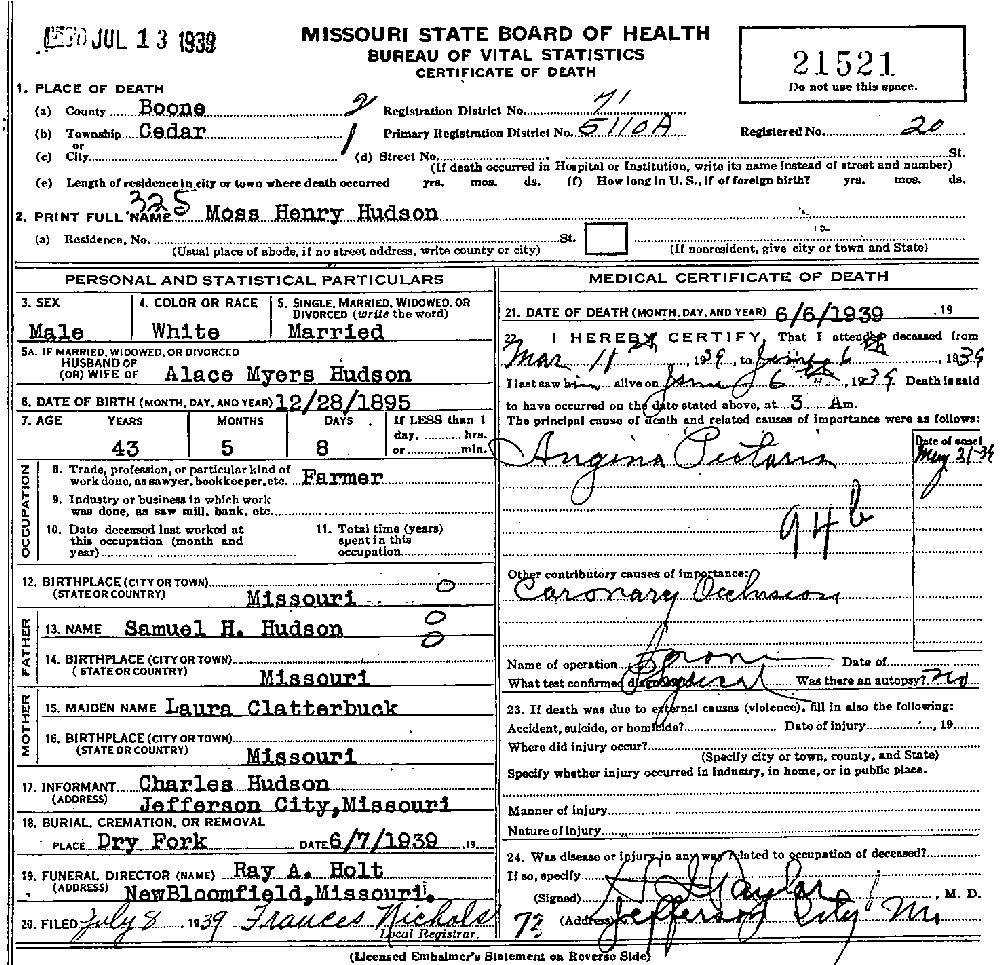 JUL 13 1939
MISSOURI STATE BOARD OF HEALTH
BUREAU OF VITAL STATISTICS
CERTIFICATE OF DEATH
21521
Do not use this space.
1. PLACE OF DEATH
(a) County Boone 2 Registration District No. 71
(b) Township Cedar 1 Primary Registration District No. 5110A Registered No. 20
or
(c) City (d) Street No. St.
(If death occurred in Hospital or Institution, write its name instead of street and number)
(e) Length of residence in city or town where death occurred yrs. mos. ds. (f) How long in U. S., if of foreign birth? yrs. mos. ds.
325
2. PRINT FULL NAME Moss Henry Hudson
(a) Residence, No. St.
(Usual place of abode, if no street address, write county or city) (If nonresident, give city or town and State)
PERSONAL AND STATISTICAL PARTICULARS
3. SEX 4. COLOR OR RACE 5. SINGLE, MARRIED, WIDOWED, OR
DIVORCED (write the word)
Male White Married
5A. IF MARRIED, WIDOWED, OR DIVORCED
HUSBAND OF
(OR) WIFE OF Alace Myers Hudson
6. DATE OF BIRTH (MONTH, DAY, AND YEAR) 12/28/1895
7. AGE YEARS MONTHS DAYS If LESS than 1
day, hrs.
43 5 8 or min.
OCCUPATION
8. Trade, profession, or particular kind of
work done, as sawyer, bookkeeper, etc. Farmer
9. Industry or business in which work
was done, as saw mill, bank, etc.
10. Date deceased last worked at
this occupation (month and
year)
11. Total time (years)
spent in this
occupation
12. BIRTHPLACE (CITY OR TOWN) 0
(STATE OR COUNTRY) Missouri
FATHER
13. NAME Samuel H. Hudson 0
0
14. BIRTHPLACE (CITY OR TOWN)
(STATE OR COUNTRY) Missouri
MOTHER
15. MAIDEN NAME Laura Clatterbuck
16. BIRTHPLACE (CITY OR TOWN)
(STATE OR COUNTRY) Missouri
17. INFORMANT Charles Hudson
(ADDRESS) Jefferson City, Missouri
18. BURIAL, CREMATION, OR REMOVAL
PLACE Dry Fork DATE 6/7/1939 19
19. FUNERAL DIRECTOR (NAME) Ray A. Holt
(ADDRESS) NewBloomfield, Missouri.
20. FILED July 8 1939 Frances Nichols
Local Registrar.
MEDICAL CERTIFICATE OF DEATH
21. DATE OF DEATH (MONTH, DAY, AND YEAR) 6/6/1939 , 19
22. I HEREBY CERTIFY, That I attended deceased from
Mar 11th 1939, to June 6th, 1939
I last saw him alive on June 6th, 1939 Death is said
to have occurred on the date stated above, at 3 Am.
The principal cause of death and related causes of importance were as follows:
Date of onset
Angina Pectoris May 31-39
94b
Other contributory causes of importance:
Coronary Occlusion
Name of operation Date of
What test confirmed diagnosis? Physical Was there an autopsy? no
23. If death was due to external causes (violence), fill in also the following:
Accident, suicide, or homicide? Date of injury , 19
Where did injury occur?
(Specify city or town, county, and State)
Specify whether injury occurred in industry, in home, or in public place.
Manner of injury
Nature of injury
24. Was disease or injury in any way related to occupation of deceased?
If so, specify
(Signed) Taylor M. D.
72 (Address) Jefferson City Mo.
(Licensed Embalmer's Statement on Reverse Side)